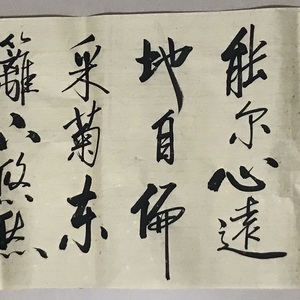 能尔心远
地自偏
采菊东
篱下悠然